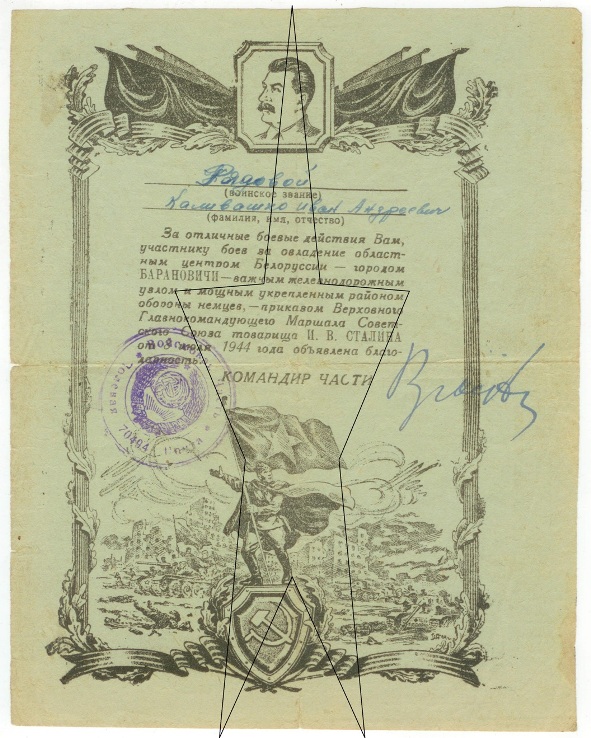 Рядовой
(воинское звание)
Каливашко Иван Андреевич
(фамилия, имя, отчество)
За отличные боевые действия Вам,
участнику боев за овладение област-
ным центром Белоруссии — городом
БАРАНОВИЧИ — важным железнодорожным
узлом и мощным укрепленным районом
обороны немцев, — приказом Верховного
Главнокомандующего Маршала Совет-
ского Союза товарища И. В. СТАЛИНА
от июля 1944 года объявлена благо-
дарность.
КОМАНДИР ЧАСТИ